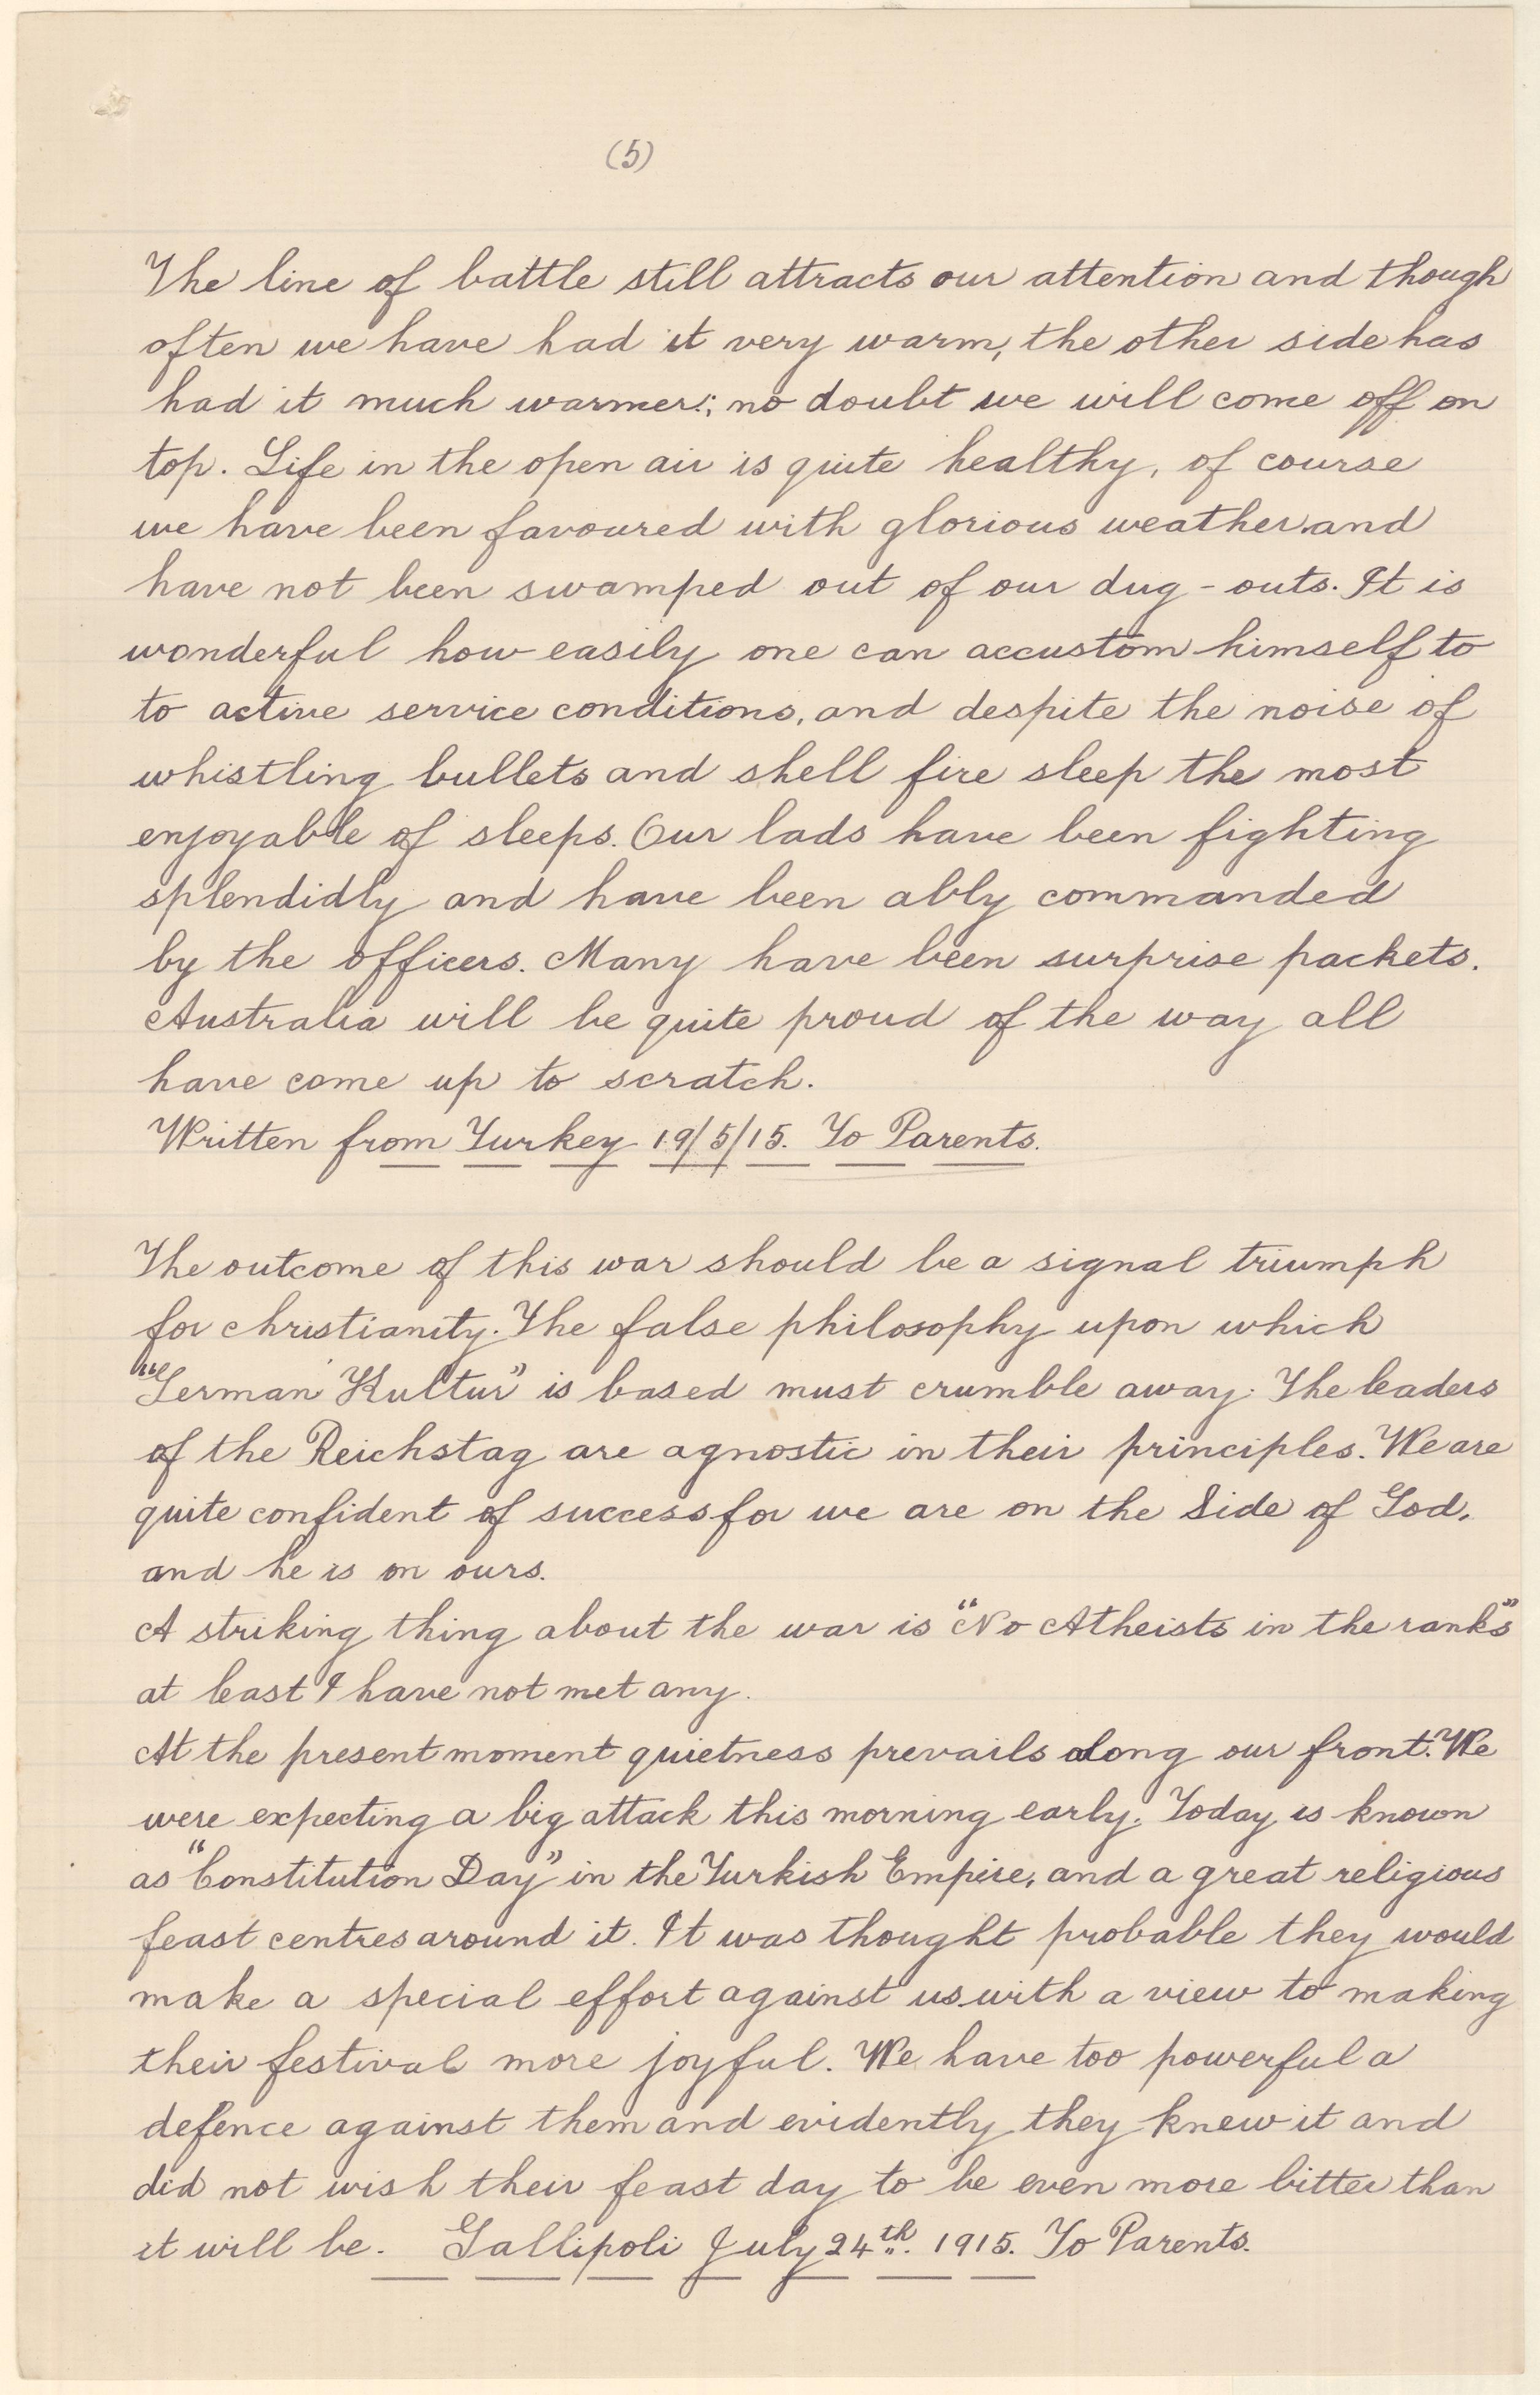 (5)
The line of battle still attracts our attention and though
often we have had it very warm, the other side has
had it much warmer; no doubt we will come off on
top. Life in the open air is quite healthy, of course
we have been favoured with glorious weather and
have not been swamped out of our dug-outs. It is
wonderful how easily one can accustom himself to
to active service conditions, and despite the noise of
whistling bullets and shell fire sleep the most
enjoyable of sleeps. Our lads have been fighting
splendidly and have been ably commanded
by the officers. Many have been surprise packets.
Australia will be quite proud of the way all
have come up to scratch.
Written from Turkey 19/5/15. To Parents.
The outcome of this war should be a signal triumph
for christianity. The false philosophy upon which
"German Kultur" is based must crumble away. The leaders
of the Reichstag are agnostic in their principles. We are
quite confident of success for we are on the Side of God,
and he is on ours.
A striking thing about the war is "No Atheists in the ranks"
at least I have not met any.
At the present moment quietness prevails along our front. We
were expecting a big attack this morning early. Today is known
as "Constitution Day" in the Turkish Empire, and a great religious
feast centres around it. It was thought probable they would
make a special effort against us with a view to making
their festival more joyful. We have too powerful a
defence against them and evidently they knew it and
did not wish their feast day to be even more bitter than
it will be. Gallipoli July 24th. 1915. To Parents.